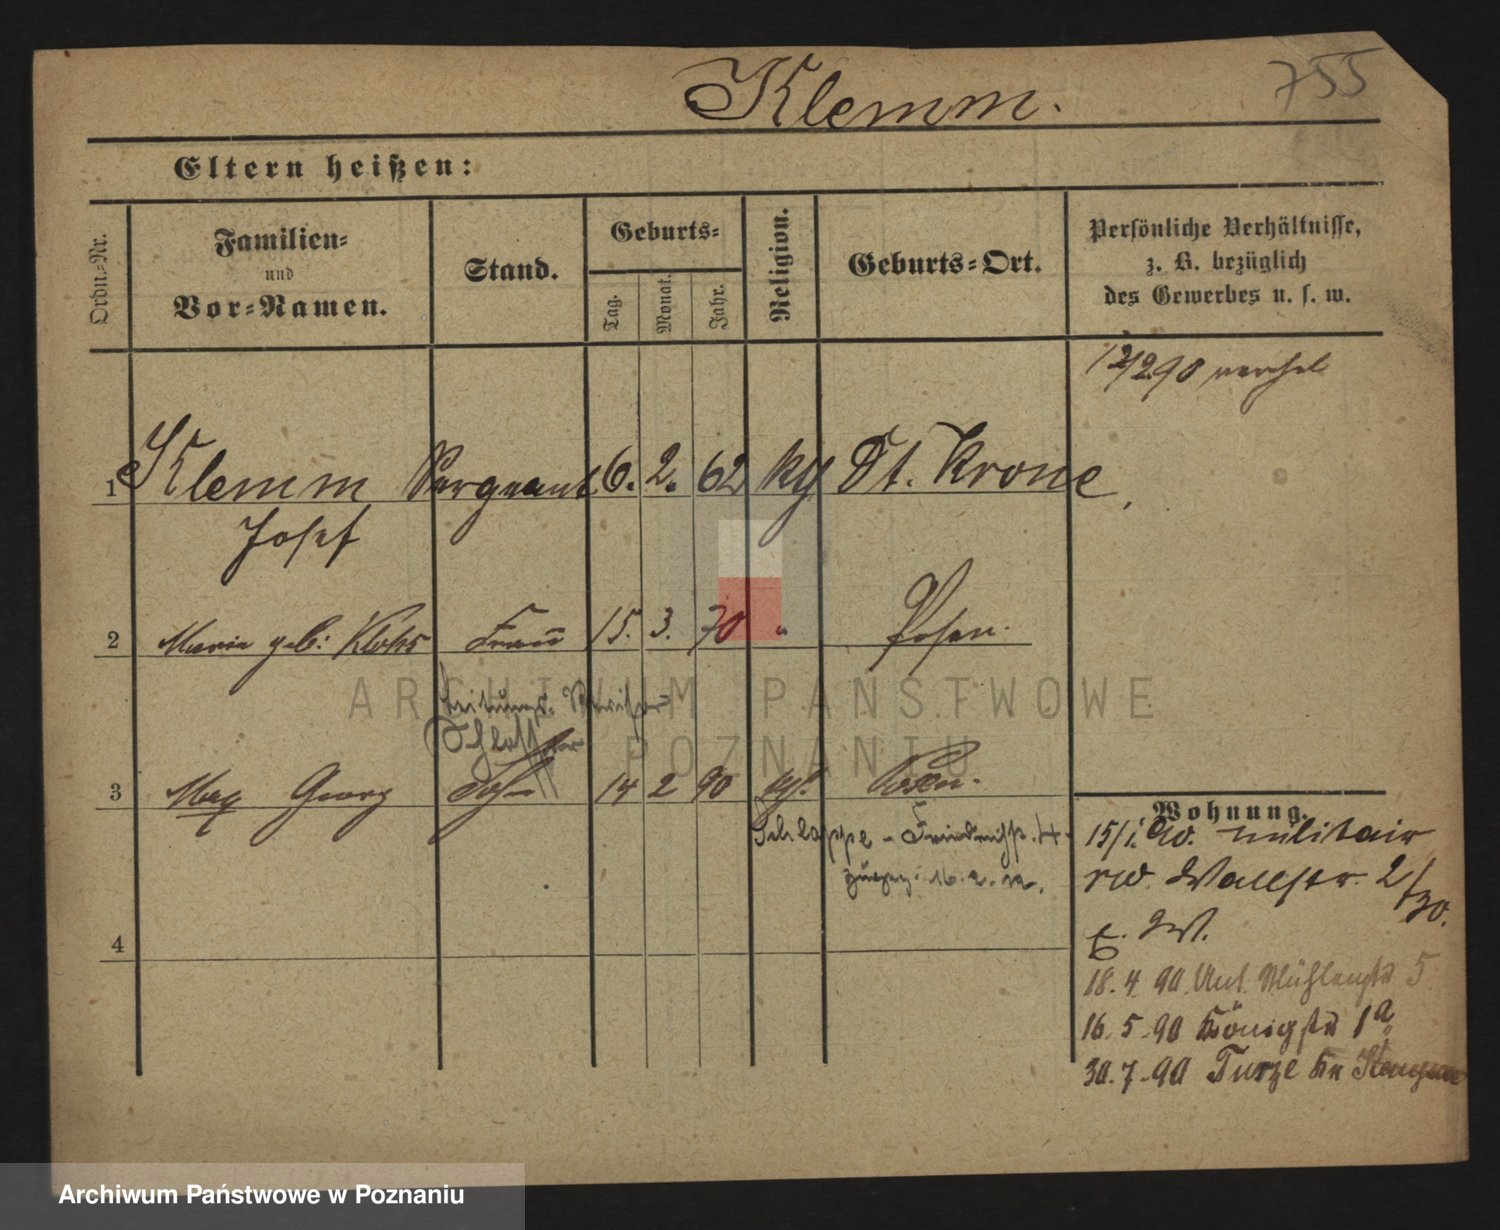 Klemm.
755
Eltern heißen:
Ordn.-Nr.
Familien-
und
Vor-Namen.
Stand.
Geburts-
Tag.
Monat.
Jahr.
Religion.
Geburts-Ort.
Persönliche Verhältnisse,
z. B. bezüglich
des Gewerbes u. s. w.
12/2 90
1 Klemm Sergeant 6. 2. 62 kth Dt. Krone
Josef
2 Maria geb: Frau 15. 3. 70 " Posen.
Schlosser
3 Max Georg Sohn 14 2 90 Posen.
4
Wohnung.
15/1. 90. militair
Wallstr. 2/30.
18. 4. 90. Unt. Mühlenstr 5.
16. 5. 90 Königstr 1a
30. 7. 90 Turze Kr
ARCHIWUM PAŃSTWOWE
POZNANIU
Archiwum Państwowe w Poznaniu